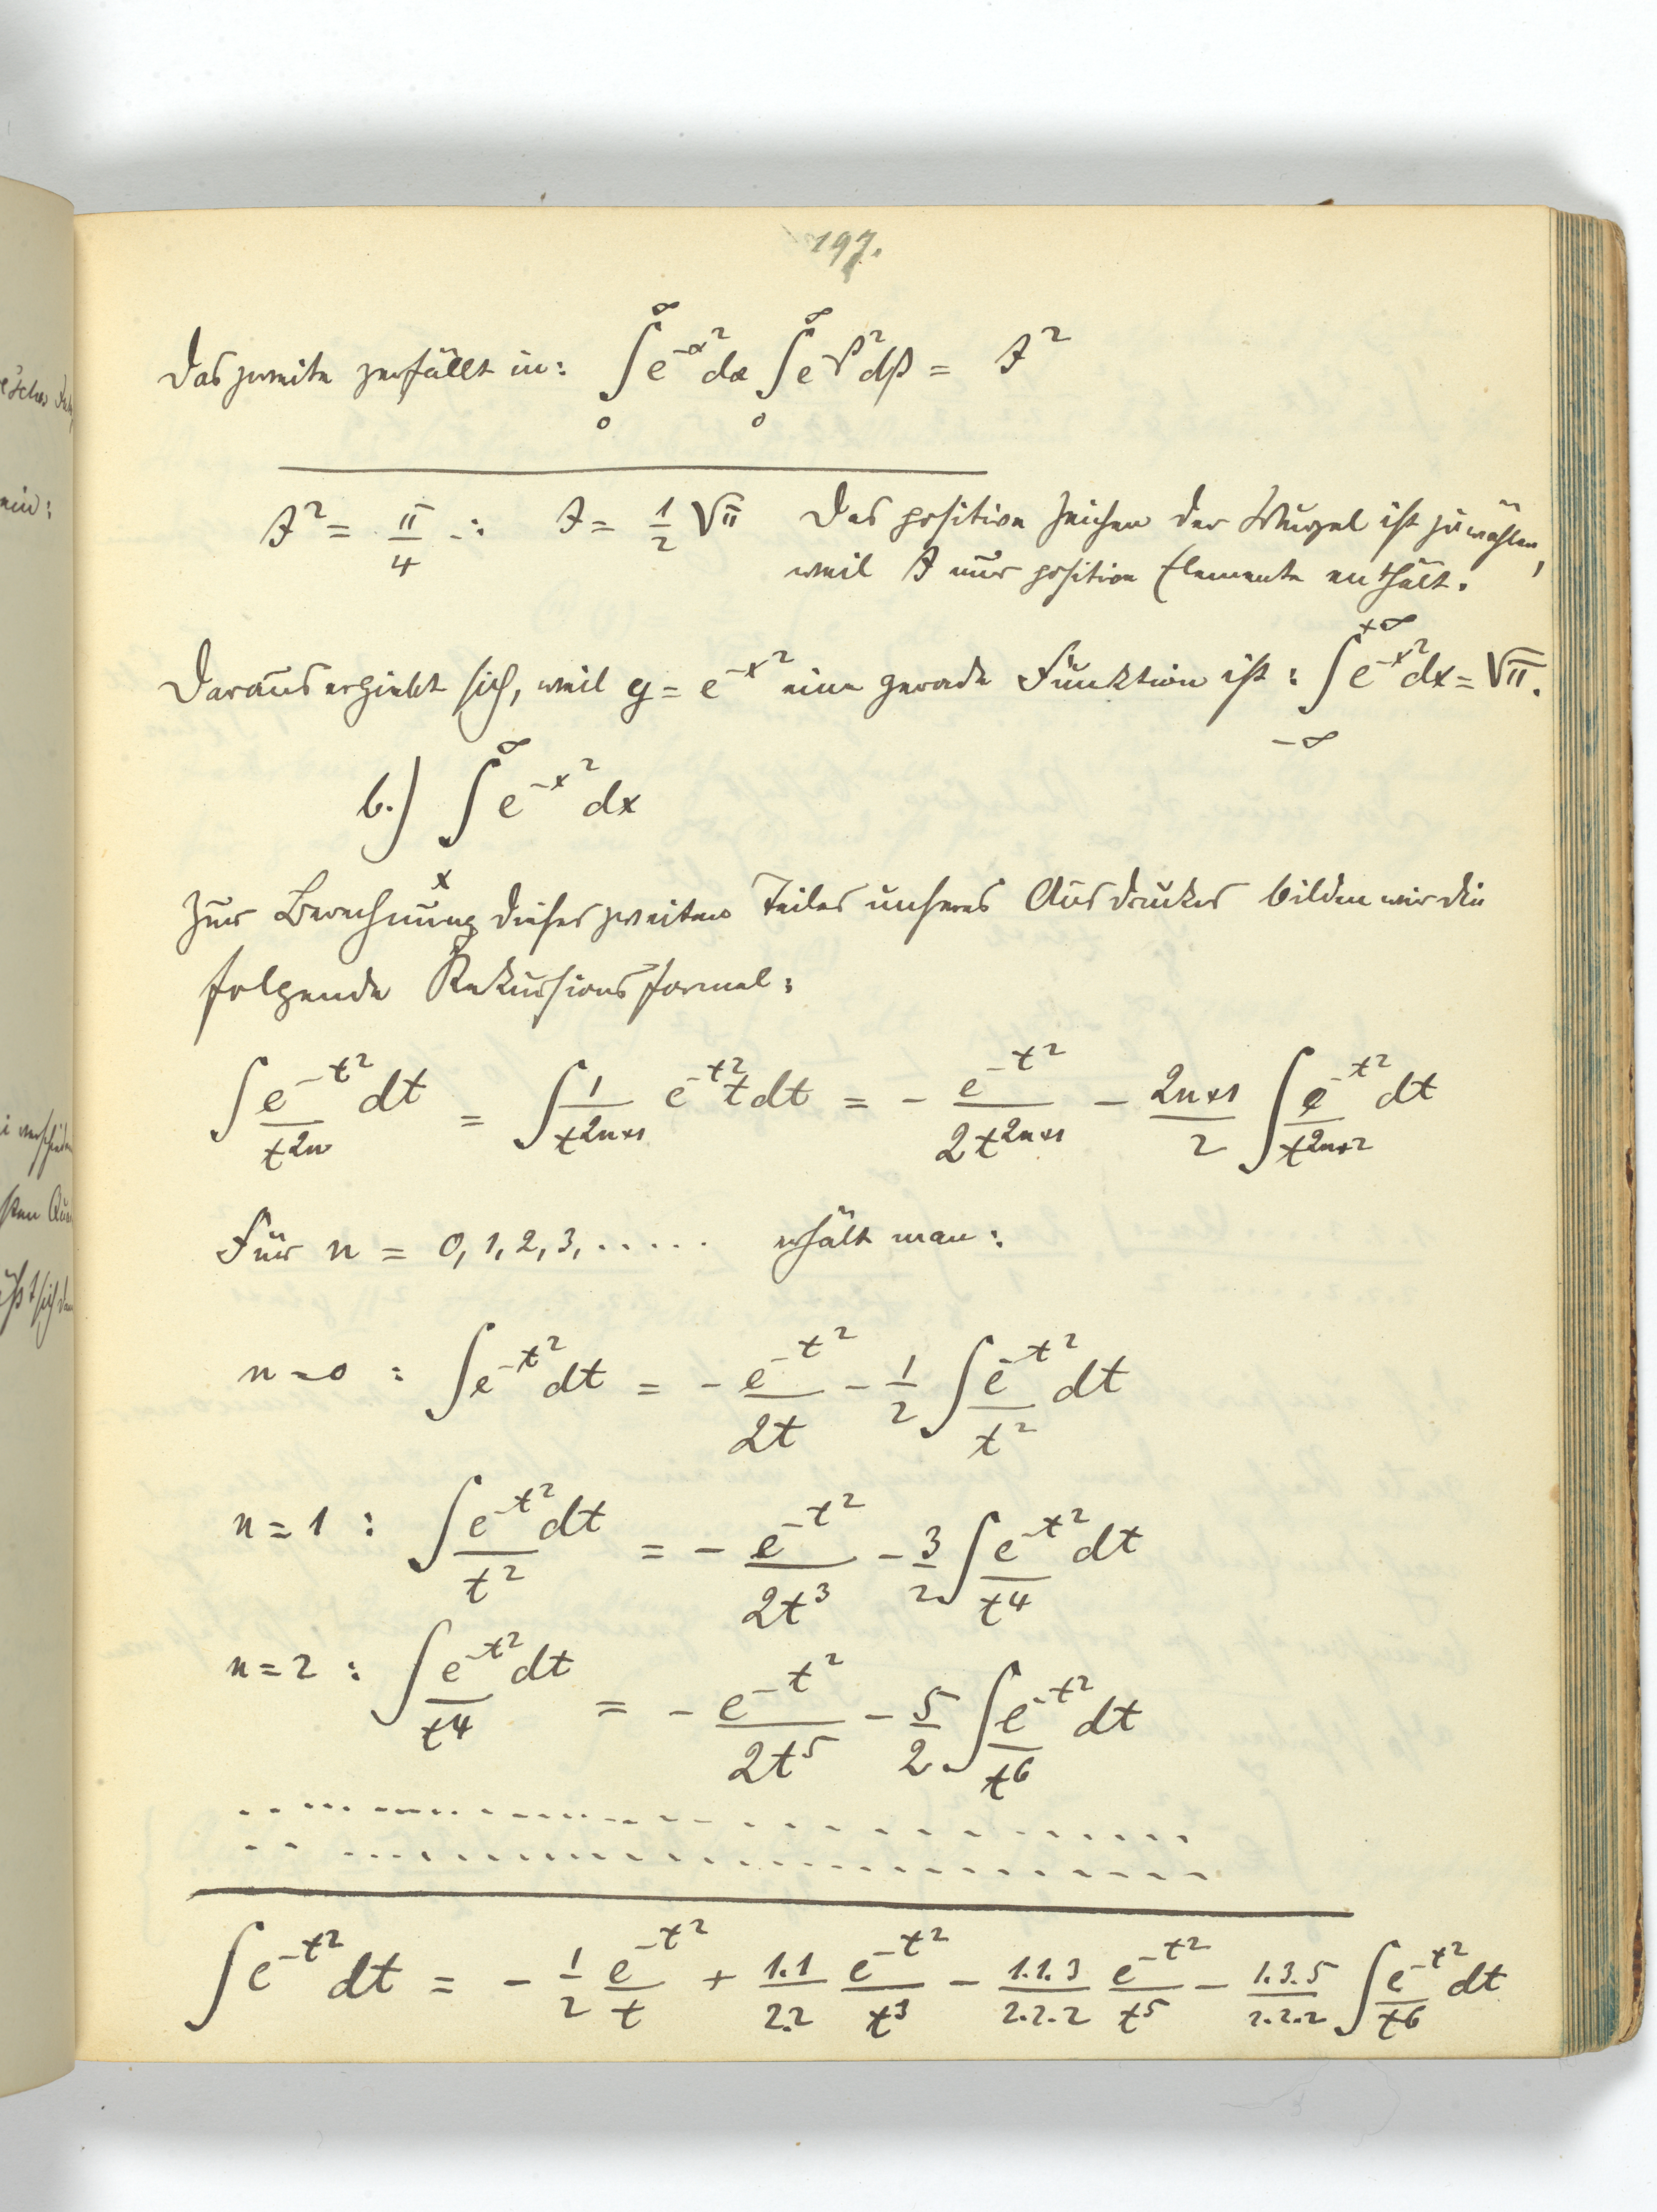 197.
Das zweite zerfällt in: ∫₀^∞ e^{-α²} dα ∫₀^∞ e^{-β²} dβ = J²
J² = π/4 ∴ J = 1/2 √π Das positive Zeichen der Wurzel ist zu wählen,
weil J nur positive Elemente enthält.
Daraus ergiebt sich, weil y = e^{-x²} eine gerade Funktion ist: ∫_{-∞}^{+∞} e^{-x²} dx = √π.
b.) ∫_x^∞ e^{-x²} dx
Zur Berechnung dieses zweiten Teiles unseres Ausdruckes bilden wir die
folgende Rekursionsformel:
∫ e^{-t²}/t^{2n} dt = ∫ 1/t^{2n+1} e^{-t²} t dt = - e^{-t²}/2t^{2n+1} - (2n+1)/2 ∫ e^{-t²}/t^{2n+2} dt
Für n = 0, 1, 2, 3, ..... erhält man:
n=0 : ∫ e^{-t²} dt = - e^{-t²}/2t - 1/2 ∫ e^{-t²}/t² dt
n=1 : ∫ e^{-t²}/t² dt = - e^{-t²}/2t³ - 3/2 ∫ e^{-t²}/t⁴ dt
n=2 : ∫ e^{-t²}/t⁴ dt = - e^{-t²}/2t⁵ - 5/2 ∫ e^{-t²}/t⁶ dt
∫ e^{-t²} dt = - 1/2 e^{-t²}/t + 1.1/2.2 e^{-t²}/t³ - 1.1.3/2.2.2 e^{-t²}/t⁵ - 1.3.5/2.2.2 ∫ e^{-t²}/t⁶ dt